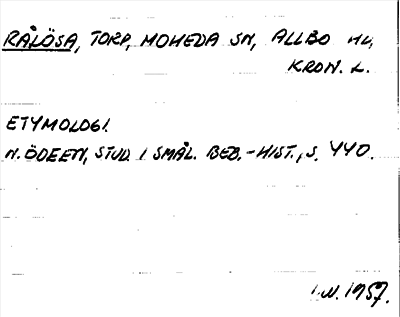 RÅLÖSA, TORP, MOHEDA SN, ALLBO HD,
KRON. L.
ETYMOLOGI.
N. ÖDEEN, STUD. I SMÅL. BEB.-HIST., S. 440.
I.W. 1957.